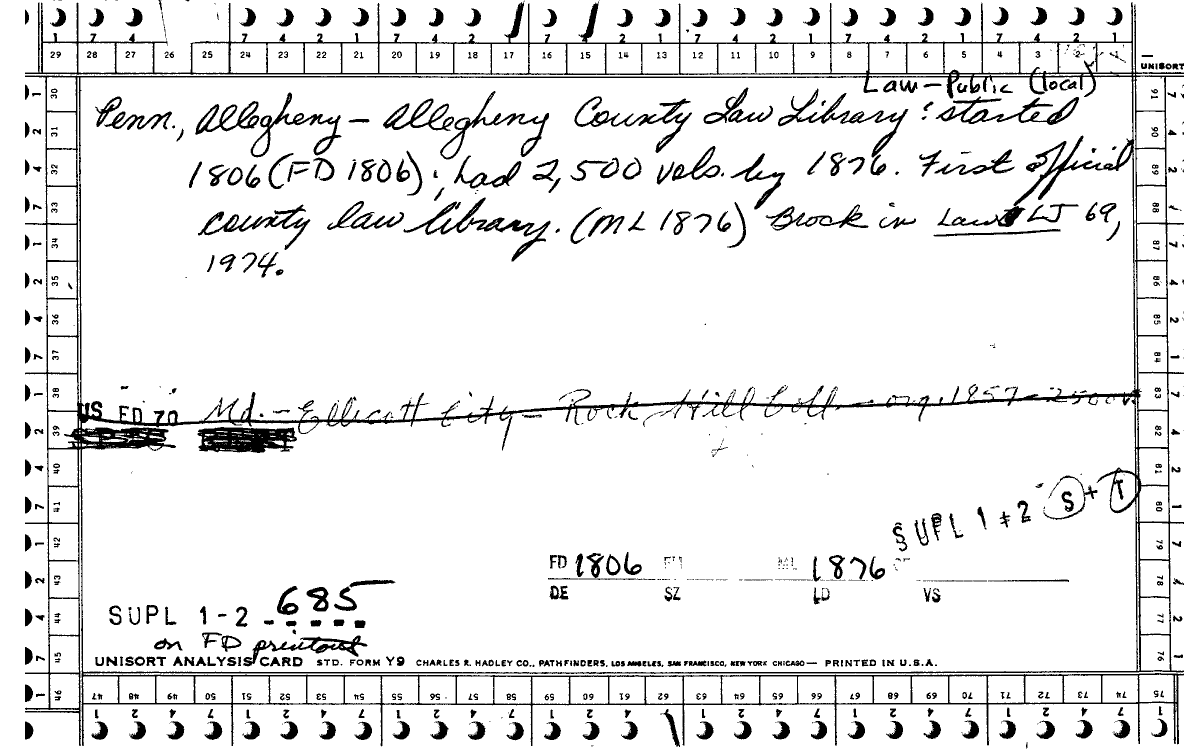 7 4 7 4 2 1 7 4 2 7 4 2 1 7 4 2 1 7 4 2 1 7 4 2 1
29 28 27 26 25 24 23 22 21 20 19 18 17 16 15 14 13 12 11 10 9 8 7 6 5 4 3
UNISORT
Law-Public (local)
Penn., Allegheny - Allegheny County Law Library: started
1806 (FD 1806); had 2,500 vols. by 1876. First official
county law library. (ML 1876) Brock in Law LJ 69,
1974.
US FD 70 Md. - Ellicott City - Rock Hill Coll. - org. 1857 - 2500v.
SUPL 1 + 2 S + T
FD 1806 ML 1876
DE SZ LD VS
SUPL 1-2 685
on FD printout
UNISORT ANALYSIS CARD STD. FORM Y9 CHARLES R. HADLEY CO., PATHFINDERS, LOS ANGELES, SAN FRANCISCO, NEW YORK CHICAGO — PRINTED IN U.S.A.
47 48 49 50 51 52 53 54 55 56 57 58 59 60 61 62 63 64 65 66 67 68 69 70 71 72 73 74 75